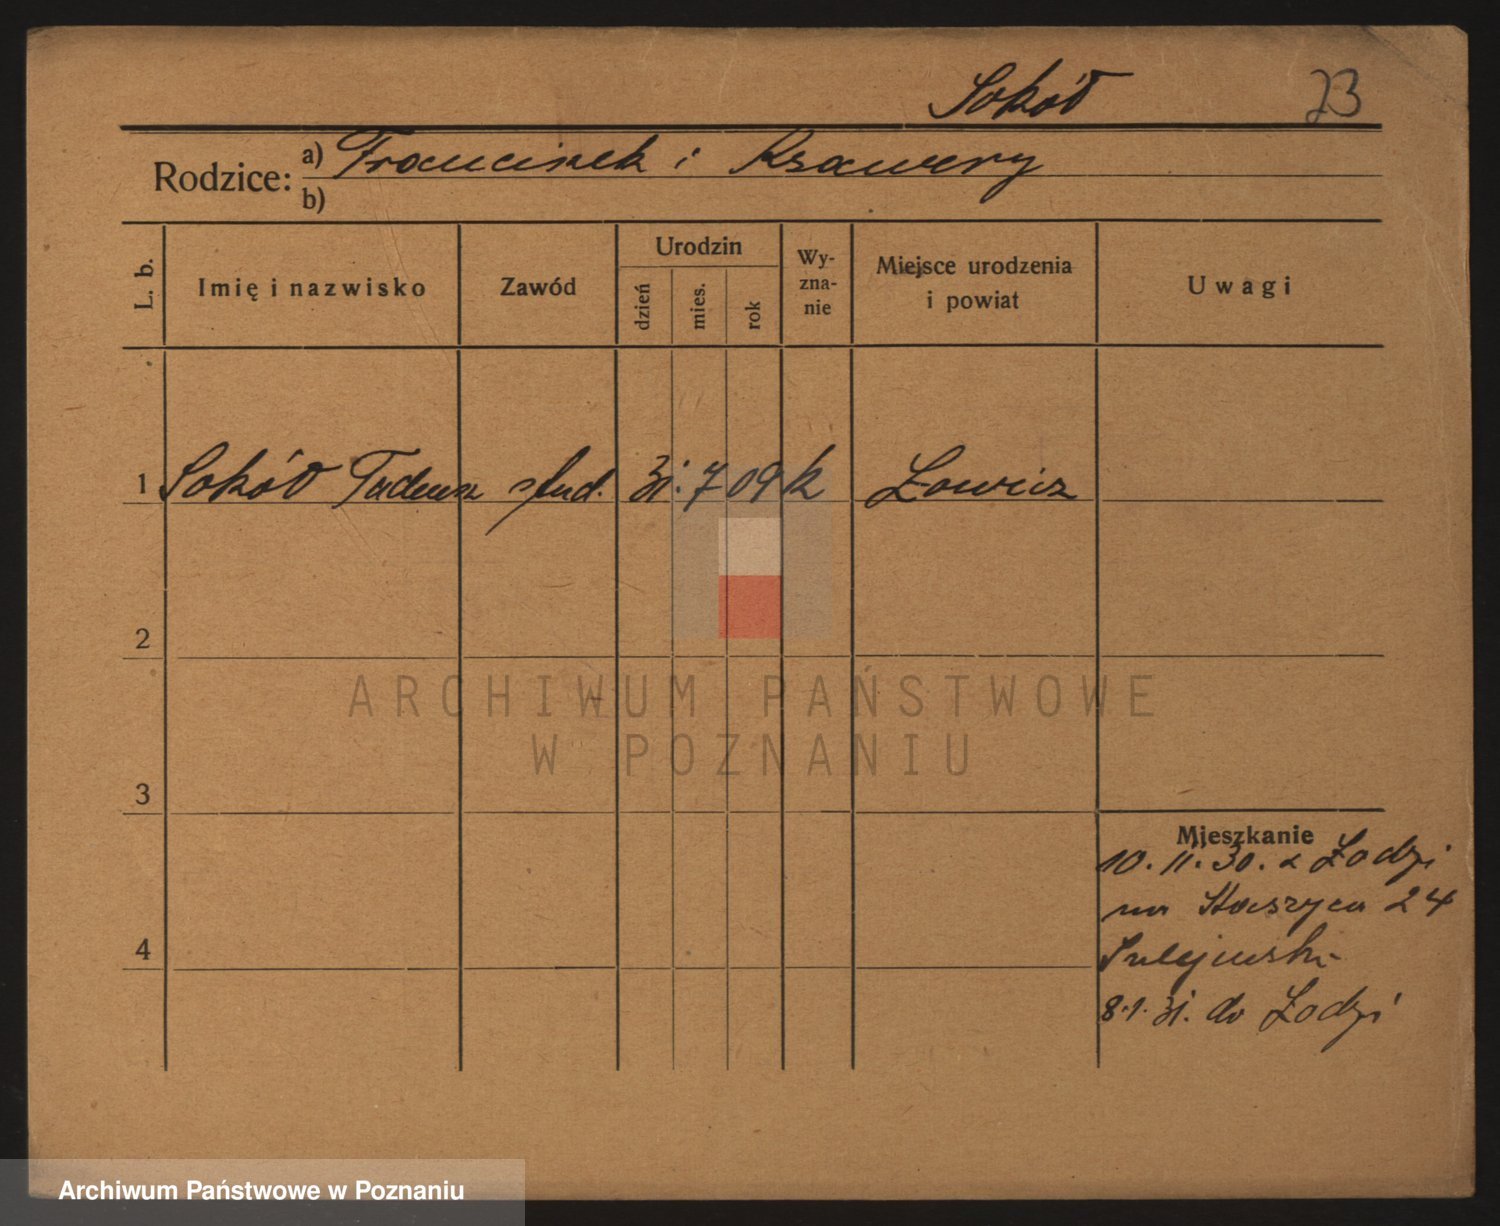 Sokół 23
Rodzice: a) Franciszek i Ksawery
b)
L. b. Imię i nazwisko Zawód Urodzin dzień mies. rok Wy-zna-nie Miejsce urodzenia i powiat Uwagi
1 Sokół Tadeusz stud. 31. 7 09 k Łowicz
2
3
Mieszkanie
10. 11. 30. z Łodzi
na Staszyca 24
4
8. 1. 31. do Łodzi
ARCHIWUM PAŃSTWOWE
W POZNANIU
Archiwum Państwowe w Poznaniu